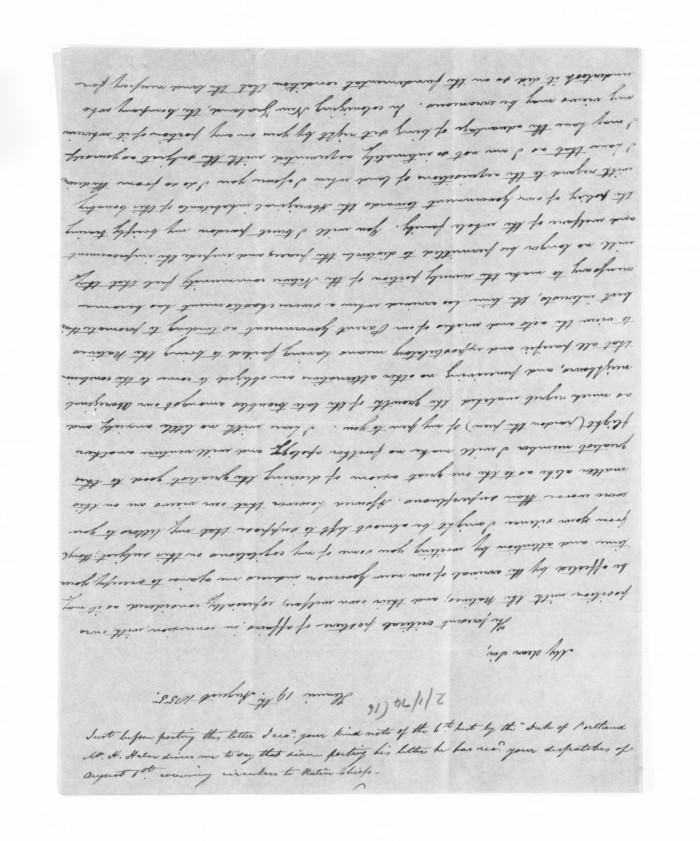 Henui 19th August 1855.
My dear Sir,
The present critical position of affairs in connexion with our
position with the Natives, and their own welfare, especially considered as it may
be affected by the arrival of our new Governor induces me again to occupy your
time and attention by writing you some of my cogitations on this subject, though
from your silence I might be almost left to suppose that my letters to you
were worse than superfluous. Assured however that our views on this
matter alike as to the one great axiom of desiring the greatest good to the
greatest number I will make no further apology and will venture another
flight (razor the pun) of my pen to you. I have with no little anxiety and
as much regret watched the growth of the late troubles amongst our Aboriginal
neighbours, and perceiving no other alternative am obliged to come to the conclusion
that all pacific and expostulatory means having failed to bring the Natives
to view the acts and wishes of our Parent government as tending to promote their
best interests, the time has arrived when a severe chastisement has become
necessary to make the unruly portion of the Native community feel that they
will no longer be permitted to disturb the peace and impede the improvement
and welfare of the whole family. You will I trust pardon my briefly tracing
the policy of our government towards the Aboriginal inhabitants of this country
with regard to the acquisition of land when I assure you I do so from
I have that as I am not so intimately acquainted with the subject as yourself
I may have the advantage of being set right by you on any portion of it wherein
my views may be erroneous. In colonizing New Zealand, the Company who
undertook it did so on the fundamental condition that the land necessary for
2/11/74 (16
Just before posting this letter I recd. your kind note of the 6th inst by the "Duke of Portland
Mr. H. Halse desires me to say that since posting his letter he has recd. your despatches of
August 1st covering circulars to Native Chiefs.